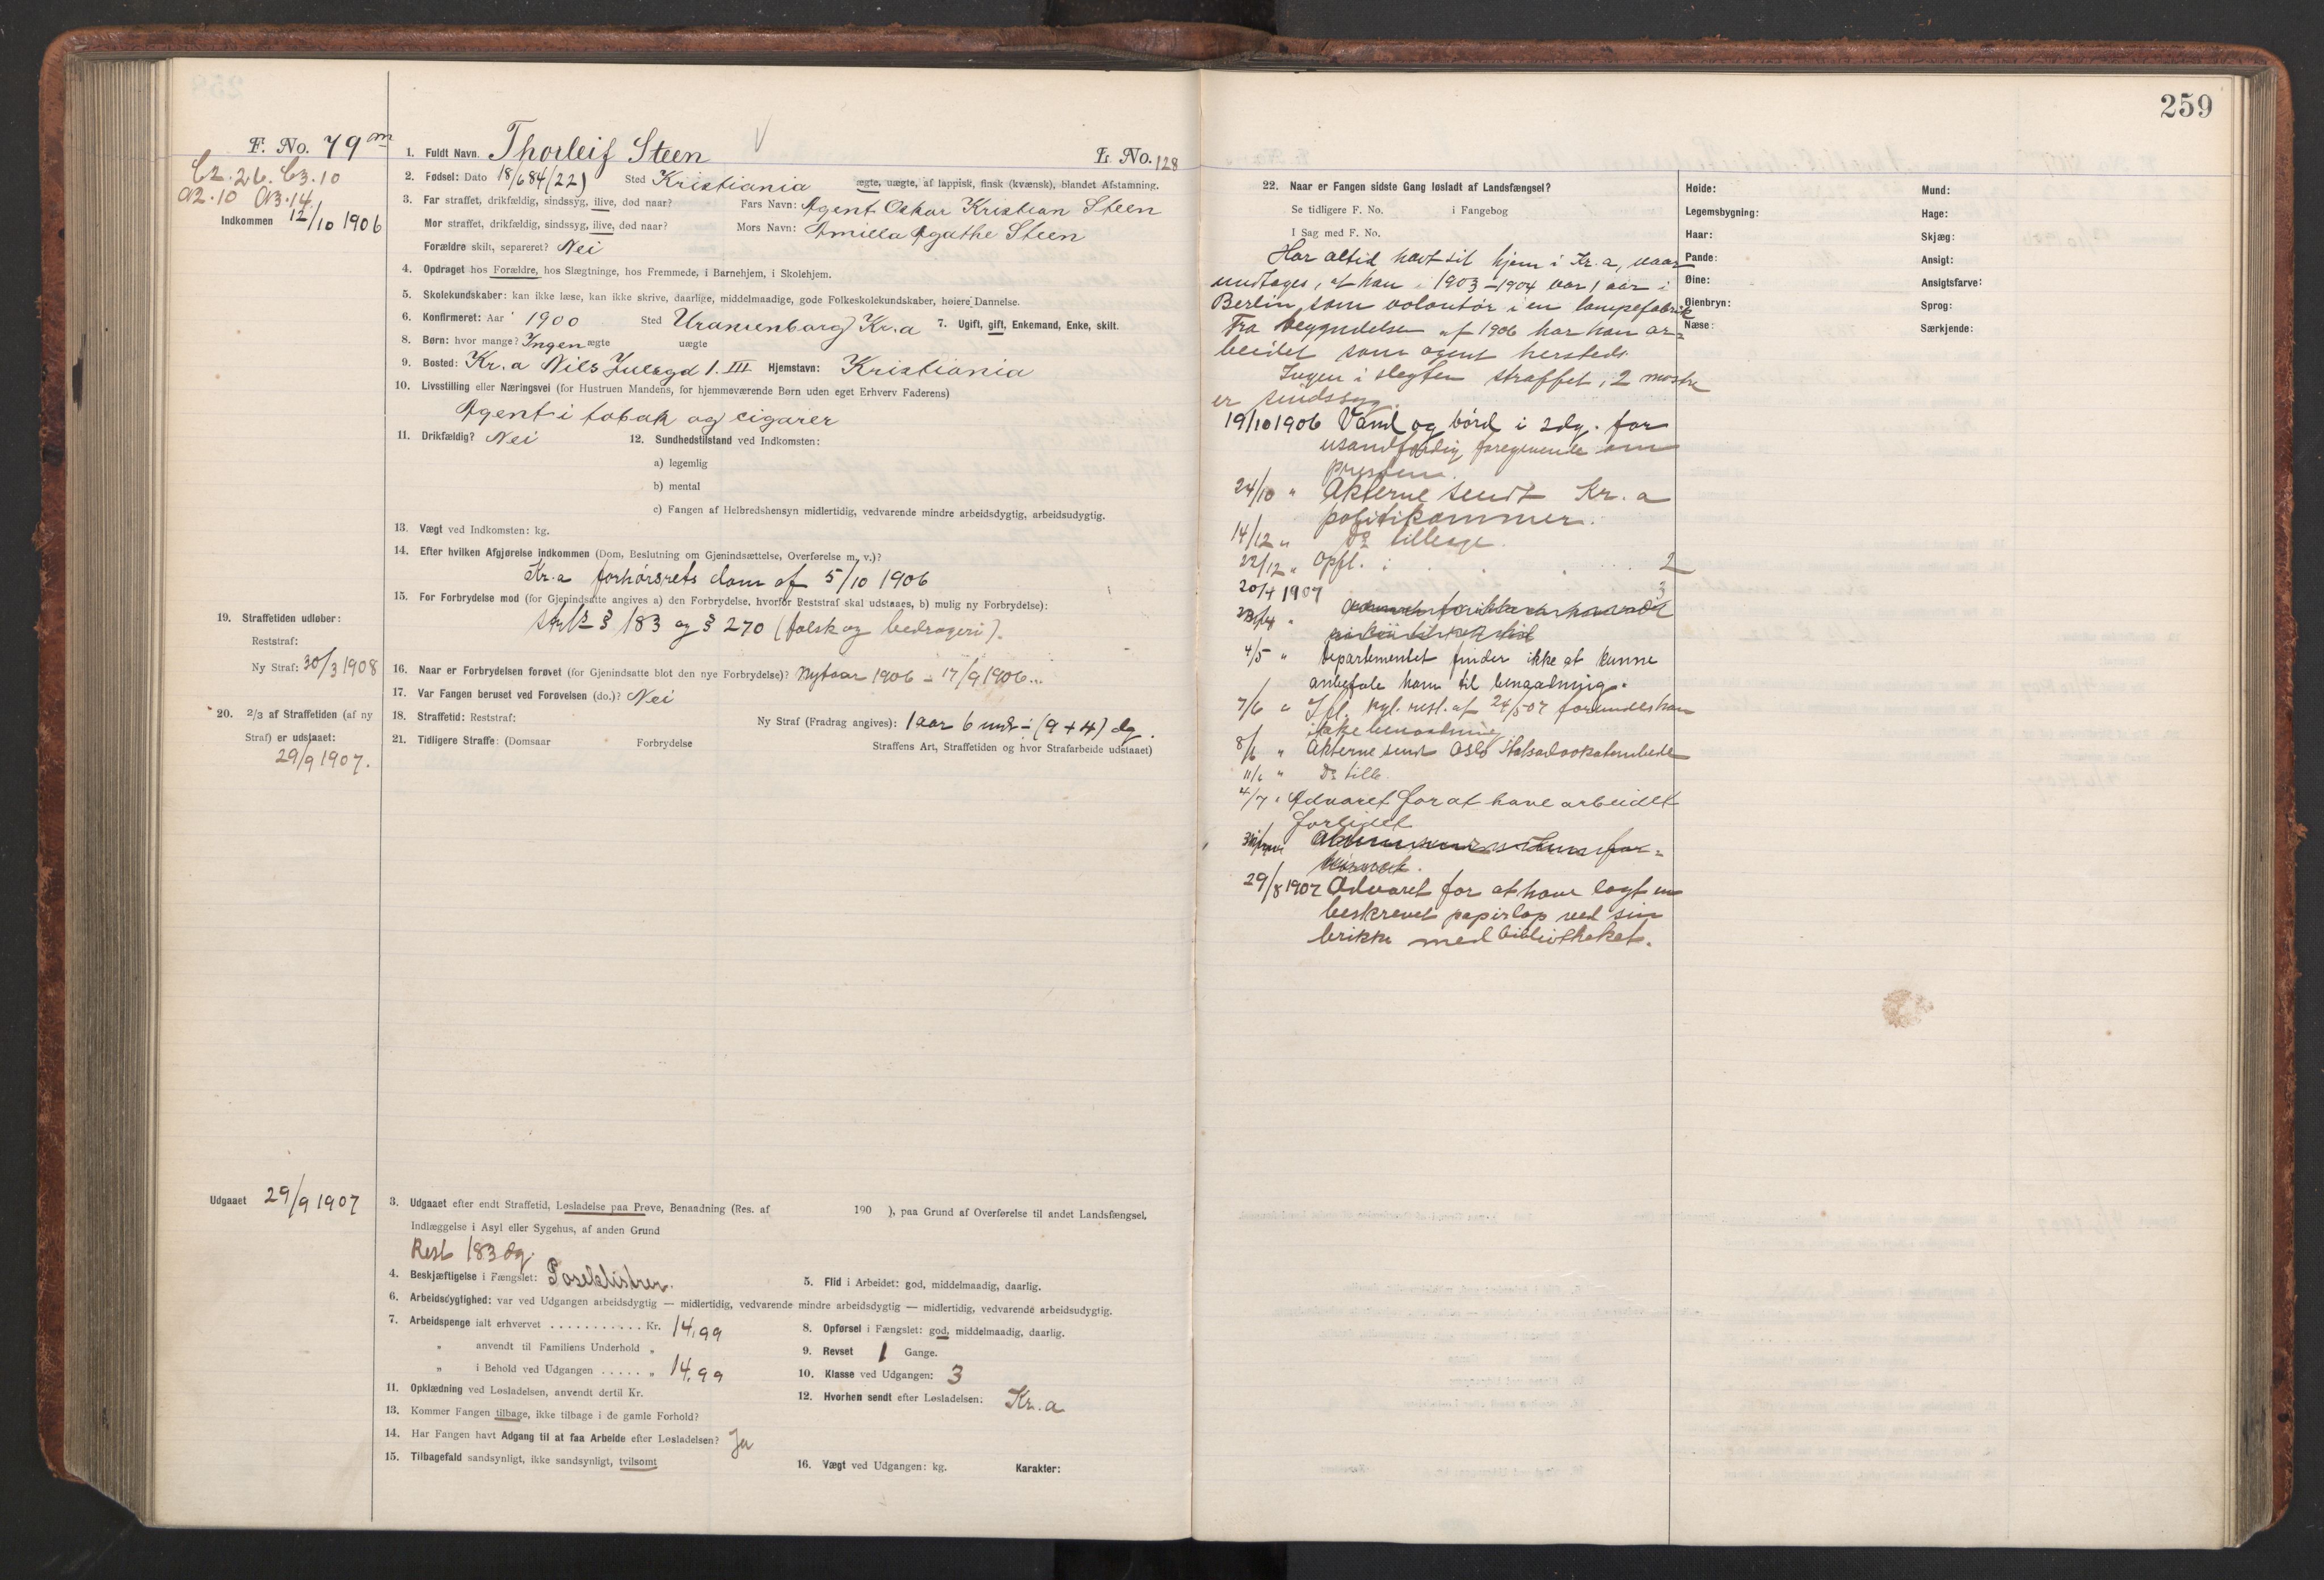 259
F. No. 79 m
C2.26. C3.10
A2.10 A3.14.
Indkommen 12/10 1906
1. Fuldt Navn Thorleif Steen
L. No. 128
2. Fødsel: Dato 18/6 84 (22) Sted Kristiania ægte, uægte, af lappisk, finsk (kvænsk), blandet Afstamning.
3. Far straffet, drikfældig, sindssyg, ilive, død naar? Fars Navn: Agent Oskar Kristian Steen
Mor straffet, drikfældig, sindssyg, ilive, død naar? Mors Navn: Amilla Agathe Steen
Forældre skilt, separeret? Nei
4. Opdraget hos Forældre, hos Slægtninge, hos Fremmede, i Barnehjem, i Skolehjem.
5. Skolekundskaber: kan ikke læse, kan ikke skrive, daarlige, middelmaadige, gode Folkeskolekundskaber, høiere Dannelse.
6. Konfirmeret: Aar 1900 Sted Uranienborg Kr.a 7. Ugift, gift, Enkemand, Enke, skilt.
8. Børn: hvor mange? Ingen ægte uægte
9. Bosted: Kr.a Nils Juelsgd 1. III. Hjemstavn: Kristiania
10. Livsstilling eller Næringsvei (for Hustruen Mandens, for hjemmeværende Børn uden eget Erhverv Faderens)
Agent i tobak og cigarer
11. Drikfældig? Nei 12. Sundhedstilstand ved Indkomsten:
a) legemlig
b) mental
c) Fangen af Helbredshensyn midlertidig, vedvarende mindre arbeidsdygtig, arbeidsudygtig.
13. Vægt ved Indkomsten: kg.
14. Efter hvilken Afgjørelse indkommen (Dom, Beslutning om Gjenindsættelse, Overførelse m. v.)?
Kr.a forhørsrets dom af 5/10 1906
15. For Forbrydelse mod (for Gjenindsatte angives a) den Forbrydelse, hvorfor Reststraf skal udstaaes, b) mulig ny Forbrydelse):
§ 183 og § 270 (falsk og bedrageri).
19. Straffetiden udløber:
Reststraf:
Ny Straf: 30/3 1908
16. Naar er Forbrydelsen forøvet (for Gjenindsatte blot den nye Forbrydelse)? Nytaar 1906 - 17/9 1906
17. Var Fangen beruset ved Forøvelsen (do.)? Nei
20. 2/3 af Straffetiden (af ny
Straf) er udstaaet:
29/9 1907.
18. Straffetid: Reststraf: Ny Straf (Fradrag angives): 1 aar 6 mdr ÷ (9 + 4) dg.
21. Tidligere Straffe: (Domsaar Forbrydelse Straffens Art, Straffetiden og hvor Strafarbeide udstaaet)
Udgaaet 29/9 1907
3. Udgaaet efter endt Straffetid, Løsladelse paa Prøve, Benaadning (Res. af 190 ), paa Grund af Overførelse til andet Landsfængsel,
Indlæggelse i Asyl eller Sygehus, af anden Grund
Rest 183 dg.
4. Beskjæftigelse i Fængslet: Poseklistrer. 5. Flid i Arbeidet: god, middelmaadig, daarlig.
6. Arbeidsdygtighed: var ved Udgangen arbeidsdygtig — midlertidig, vedvarende mindre arbeidsdygtig — midlertidig, vedvarende arbeidsudygtig.
7. Arbeidspenge ialt erhvervet ........... Kr. 14,99 8. Opførsel i Fængslet: god, middelmaadig, daarlig.
" anvendt til Familiens Underhold " 9. Revset 1 Gange.
" i Behold ved Udgangen ..... " 14,99 10. Klasse ved Udgangen: 3
11. Opklædning ved Løsladelsen, anvendt dertil Kr. 12. Hvorhen sendt efter Løsladelsen: Kr.a
13. Kommer Fangen tilbage, ikke tilbage i de gamle Forhold?
14. Har Fangen havt Adgang til at faa Arbeide efter Løsladelsen? Ja
15. Tilbagefald sandsynligt, ikke sandsynligt, tvilsomt 16. Vægt ved Udgangen: kg. Karakter:
22. Naar er Fangen sidste Gang løsladt af Landsfængsel?
Se tidligere F. No. i Fangebog
I Sag med F. No.
Har altid havt sit hjem i Kr.a, naar
undtages, at han i 1903-1904 var 1 aar i
Berlin som volontør i en lampefabrik
Fra begyndelsen af 1906 har han ar-
beidet som agent hersteds.
Ingen i slegten straffet, 2 mostre
er sindssyg.
19/10 1906 Vand og brød i 2 dg. for
usandfærdig foregivende om
presten.
24/10 " Akterne sendt Kr.a
politikammer.
14/12 " Do tilbage.
22/12 " Opfl. i . . . . 2
20/4 1907 3
4/5 " Departementet finder ikke at kunne
anbefale ham til benaadning.
7/6 " Ifl. kgl. resl. af 24/5 07 forundtes han
ikke benaadning
8/6 " Akterne sendt Oslo Statsadvokatembede
11/6 " Do tilb.
4/7 " Advaret for at have arbeidet
forbidet
29/8 1907 Advaret for at have lagt en
beskrevet papirlap ved sin
brikke med bibliotheket.
Høide:
Legemsbygning:
Haar:
Pande:
Øine:
Øienbryn:
Næse:
Mund:
Hage:
Skjæg:
Ansigt:
Ansigtsfarve:
Sprog:
Særkjende: